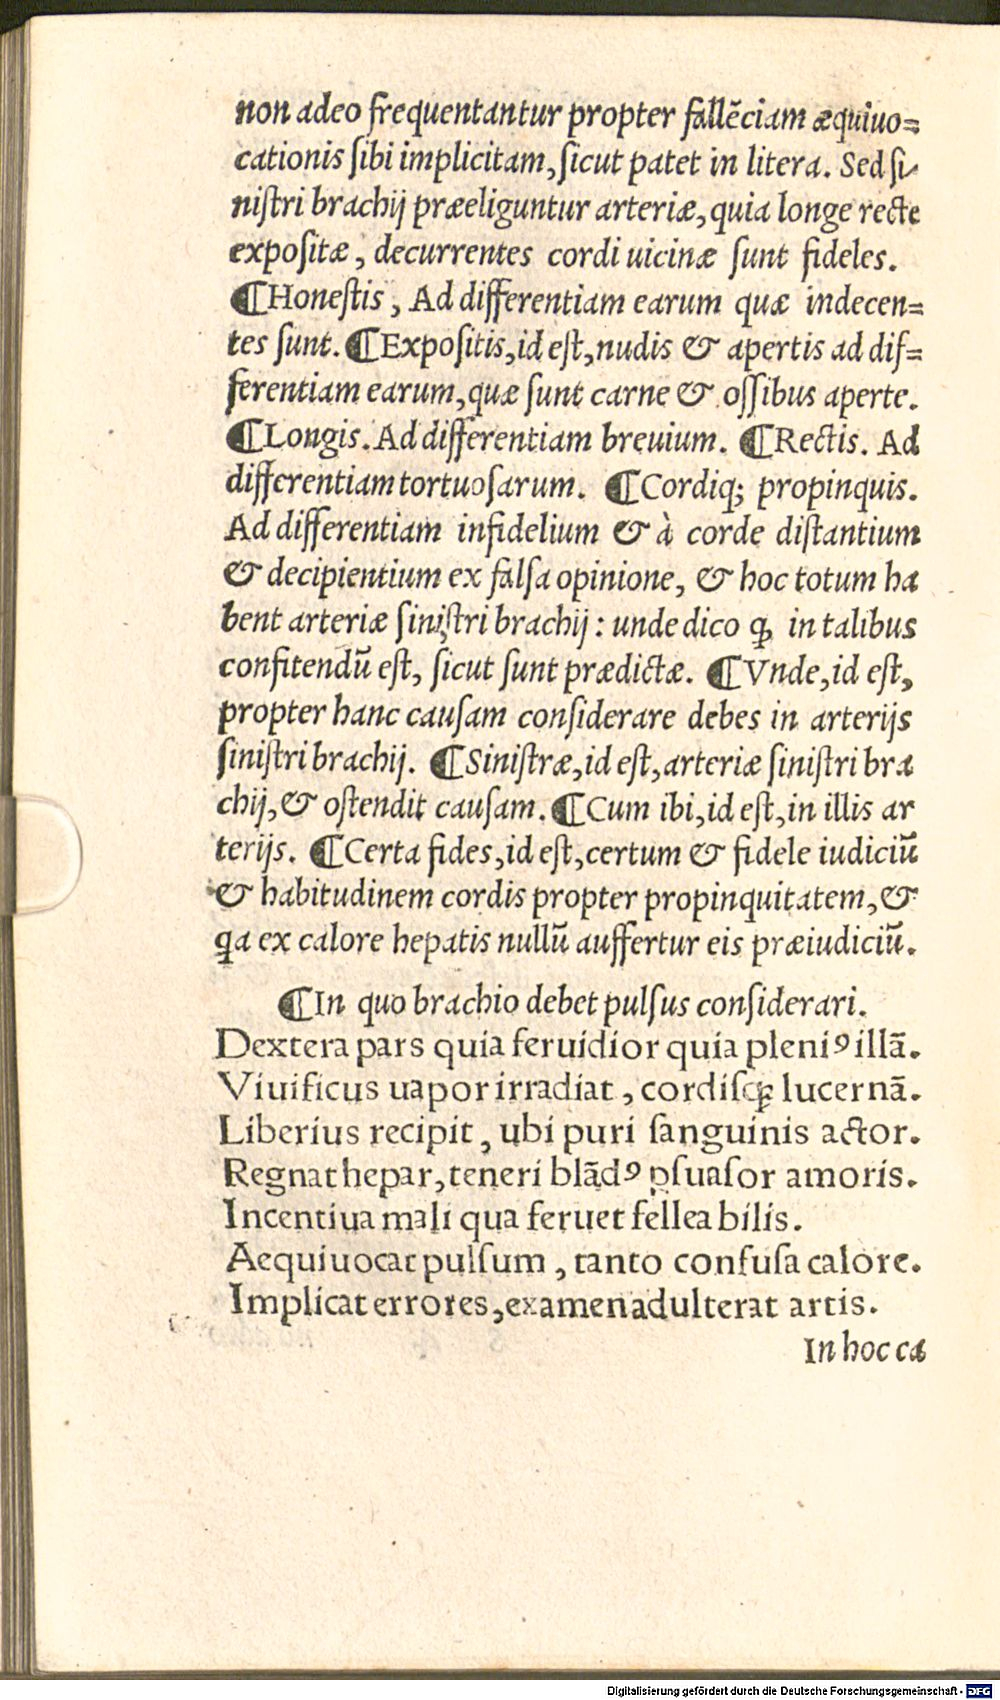 non adeo frequentantur propter fallēciam æquiuo=
cationis ſibi implicitam, ſicut patet in litera. Sed ſi-
niſtri brachij præeliguntur arteriæ, quia longe recte
expoſitæ, decurrentes cordi uicinæ ſunt fideles.
¶Honeſtis, Ad differentiam earum quæ indecen=
tes ſunt. ¶Expoſitis, id eſt, nudis & apertis ad dif=
ferentiam earum, quæ ſunt carne & oſſibus aperte.
¶Longis. Ad differentiam breuium. ¶Rectis. Ad
differentiam tortuoſarum. ¶Cordiq; propinquis.
Ad differentiam infidelium & à corde diſtantium
& decipientium ex falſa opinione, & hoc totum ha
bent arteriæ ſiniſtri brachij: unde dico ꝙ in talibus
confitendū eſt, ſicut ſunt prædictæ. ¶Vnde, id eſt,
propter hanc cauſam conſiderare debes in arterijs
ſiniſtri brachij. ¶Siniſtræ, id eſt, arteriæ ſiniſtri bra
chij, & oſtendit cauſam. ¶Cum ibi, id eſt, in illis ar
terijs. ¶Certa fides, id eſt, certum & fidele iudiciū
& habitudinem cordis propter propinquitatem, &
qa ex calore hepatis nullū auffertur eis præiudiciū.
¶In quo brachio debet pulſus conſiderari.
Dextera pars quia feruidior quia pleniꝰ illā.
Viuificus uapor irradiat, cordiſqꝫ lucernā.
Liberius recipit, ubi puri ſanguinis actor.
Regnat hepar, teneri blādꝰ ꝑſuaſor amoris.
Incentiua mali qua feruet fellea bilis.
Aequiuocat pulſum, tanto confuſa calore.
Implicat errores, examen adulterat artis.
In hoc ca
Digitalisierung gefördert durch die Deutsche Forschungsgemeinschaft - DFG